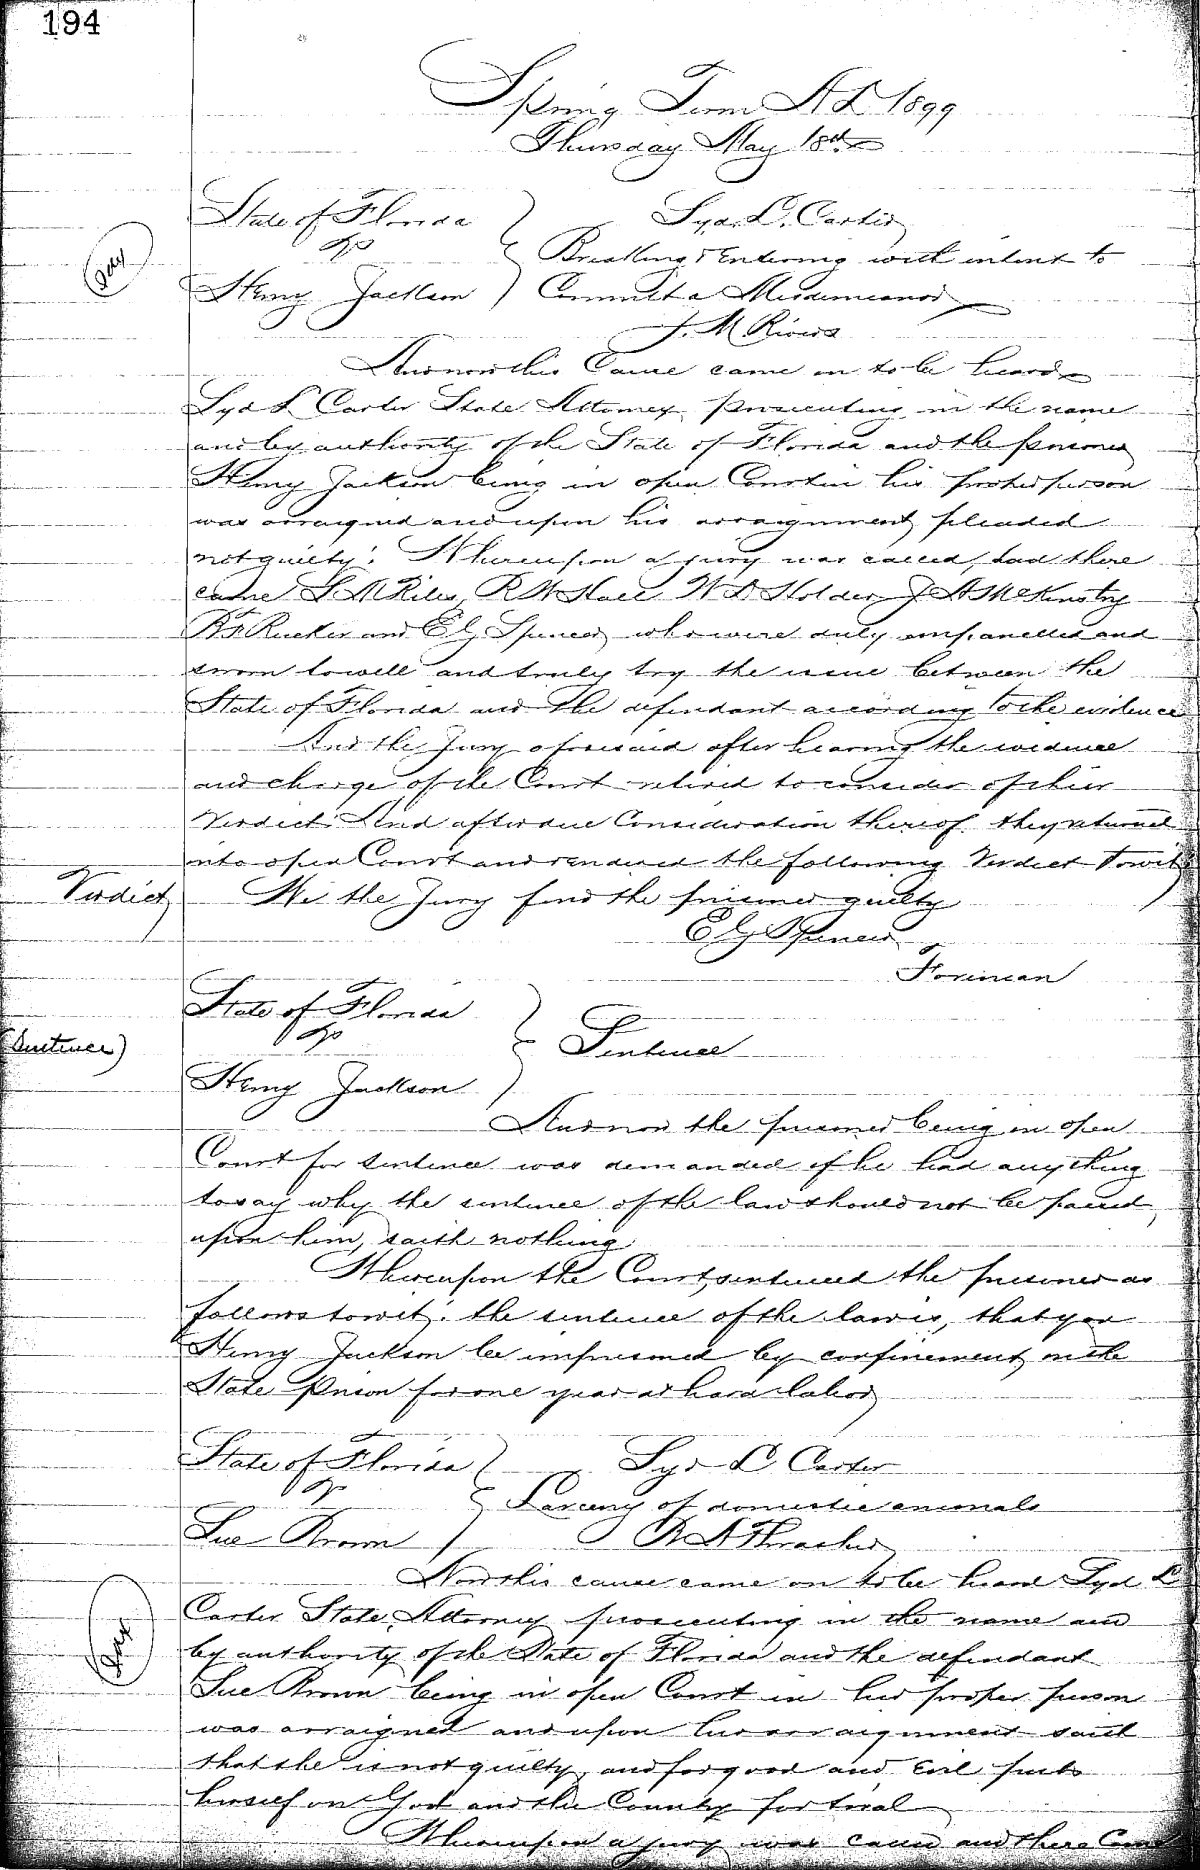 194
Spring Term A D 1899
Thursday May 18th
State of Florida Syd. L. Carter
vs Breaking & Entering with intent to
Henry Jackson Commit a Misdemeanor
J. M. Rivers
And now this Cause came on to be heard
Syd L Carter State Attorney prosecuting in the name
and by authority of the State of Florida and the prisoner
Henry Jackson being in open Court in his proper person
was arraigned and upon his arraignment pleaded
not guilty. Whereupon a jury was called, and there
came S. M Riles, R W Hall W D Holder J A McKinstry
B F Rucker and E G Spencer who were duly empanelled and
sworn to well and truly try the issue between the
State of Florida and the defendant according to the evidence
And the Jury aforesaid after hearing the evidence
and charge of the Court retired to consider of their
Verdict And after due Consideration thereof they returned
into open Court and rendered the following Verdict towit
Verdict We the Jury find the prisoner guilty
E G Spencer
Foreman
State of Florida
vs
(Sentence) Sentence
Henry Jackson
And now the prisoner being in open
Court for sentence was demanded if he had anything
to say why the sentence of the law should not be passed
upon him, saith nothing
Whereupon the Court sentenced the prisoner as
follows towit: the sentence of the law is, that you
Henry Jackson be imprisoned by confinement in the
State Prison for one year at hard labor
State of Florida Syd L Carter
vs Larceny of domestic animals
Sue Brown R A Thrasher
Now this cause came on to be heard Syd L
Carter State Attorney prosecuting in the name and
by authority of the State of Florida and the defendant
Sue Brown being in open Court in her proper person
was arraigned and upon her arraignment saith
that she is not guilty, and for good and Evil puts
herself on God and the County for trial
Whereupon a jury was called and there Came